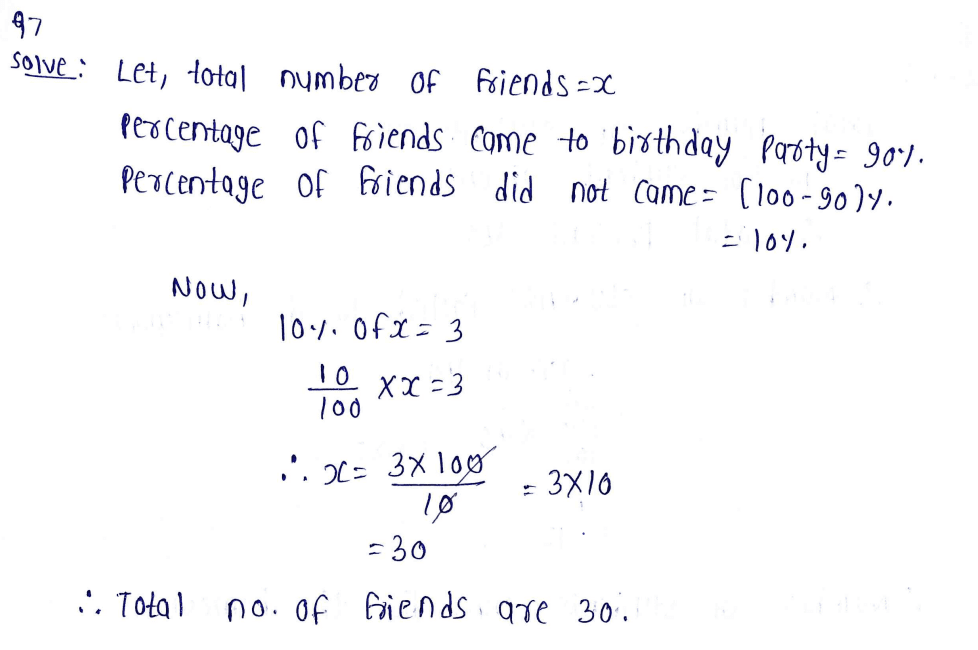 97
Solve: Let, total number of friends = x
Percentage of friends came to birthday Party = 90%.
Percentage of friends did not came = (100-90)%.
= 10%.
Now,
10% of x = 3
10/100 × x = 3
∴ x = 3×100/10 = 3×10
= 30
∴ Total no. of friends are 30.